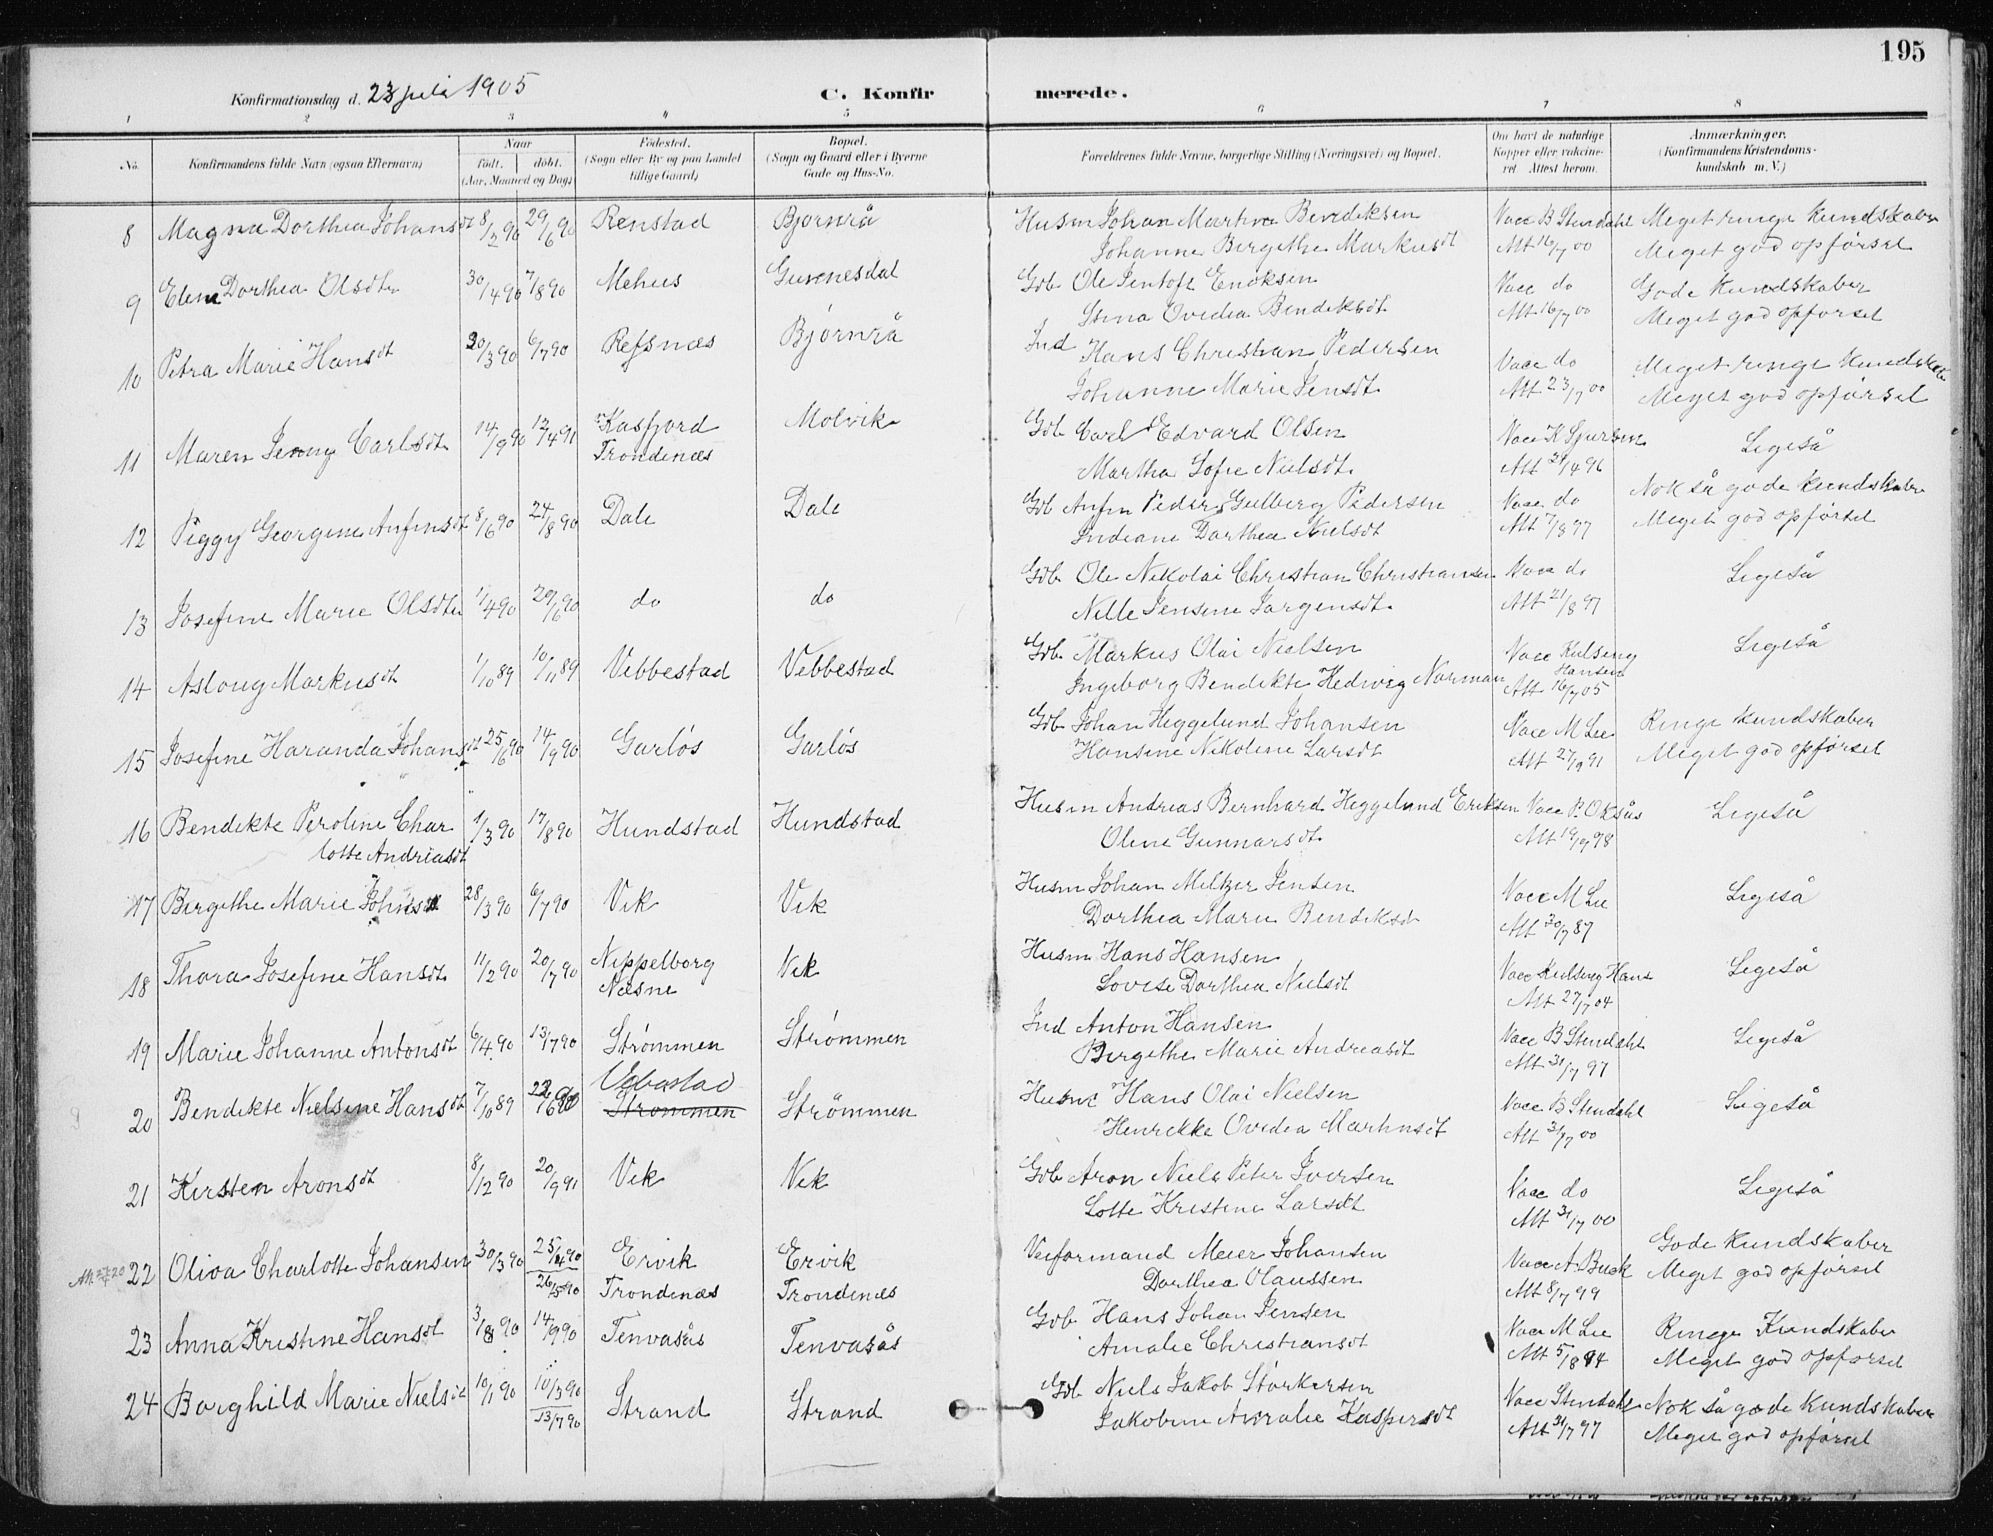 195
Konfirmationsdag d. 23 juli 1905
C. Konfir merede.
1 2 3 4 5 6 7 8
No. Konfirmandens fulde Navn (ogsaa Efternavn) Naar født. døbt. (Aar, Maaned og Dag) Fødested. (Sogn eller By og paa Landet tillige Gaard) Bopæl. (Sogn og Gaard eller i Byerne Gade og Hus-No. Forældrenes fulde Navne, borgerlige Stilling (Næringsvei) og Bopæl. Om havt de naturlige Kopper eller vaccineret. Attest herom. Anmærkninger. (Konfirmandens Kristendomskundskab m. V.)
8 Magna Dorthea Johansdt 8/2 90 29/6 90 Renstad Bjørnrå Husm Johan Martin Bendiksen Vacc B Stendahl Meget ringe Kundskaber
Johanne Bergethe Markusdt Att 16/7 00 Meget god opførsel
9 Elene Dorthea Olsdtr 30/4 90 7/8 90 Mehus Gunnesdal Gdb Ole Jentoft Enoksen Vacc do Gode Kundskaber
Stina Ovidia Bendiksdt Att 16/7 00 Meget god opførsel
10 Petra Marie Hansdt 20/3 90 6/7 90 Refsnæs Bjørnrå Ind Hans Christian Pedersen Vacc do Meget ringe Kundskab
Johanne Marie Jensdt. Att 23/7 00 Meget god opførsel
11 Maren Jenny Carlsdt. 14/9 90 12/4 91 Kasfjord Molvik Gdb Carl Edvard Olsen Vacc K Sjursen Ligeså
Trondenæs Martha Sofie Nielsdt. Att 21/4 96
12 Peggy Georgine Anfinsdt 8/6 90 24/8 90 Dale Dale Gdb Anfin Peder Gulberg Pedersen Vacc do Nok så gode Kundskaber
Indiane Dorthea Nielsdt Att 7/8 97 Meget god opførsel
13 Josefine Marie Olsdtr 1/4 90 29/6 90 do do Gdb. Ole Nikolai Christian Christiansen Vacc do Ligeså
Nille Jensine Jørgensdt. Att 21/8 97
14 Asloug Markusdt 1/10 89 10/11 89 Vebbestad Vebbestad Gdb. Markus Olai Nielsen Vacc Kulseng Hansen Ligeså
Ingeborg Bendikte Hedvig Norman Att 16/7 05
15 Josefine Haranda Johansdt 25/6 90 14/9 90 Garløs Garløs Gdb Johan Heggelund Johansen Vacc M Lee Ringe Kundskaber
Hansine Nikoline Larsdt Att 27/9 91 Meget god opførsel
16 Bendikte Peroline Char 1/3 90 17/8 90 Hundstad Hundstad Husm Andreas Bernhard Heggelund Eriksen Vacc P. Oksås Ligeså
lotte Andreasdt Oline Gunnarsdt. Att 19/9 98
17 Bergithe Marie Johnsdt 28/3 90 6/7 90 Vik Vik Husm Johan Meltzer Jensen Vacc M Lee Ligeså
Dorthea Marie Bendiksdt Att 30/7 87
18 Thora Josefine Hansdt. 11/2 90 20/7 90 Nippelborg Vik Husm Hans Hansen Vacc Kulseng Hans Ligeså
Næsne Lovise Dorthea Nielsdt Att 27/7 04
19 Marie Johanne Antonsdt 6/4 90 13/7 90 Strømmen Strømmen Ind Anton Hansen Vacc B Stendahl Ligeså
Bergithe Marie Andreasdt Att 31/7 97
20 Bendikte Nielsine Hansdt 7/10 89 22/6 90 Vebastad Strømmen Strömmen Husm Hans Olai Nielsen Vacc B Stendahl Ligeså
Henrikke Ovidea Martinsdt Att 31/7 00
21 Kirsten Aronsdt 8/12 90 20/9 91 Vik Vik Gdb Aron Niels Peter Iversen Vacc do Ligeså
Lotte Kristine Larsdt Att 31/7 00
22 Oliva Charlotte Johansen 30/3 90 25/4 90 Ervik Ervik Veiformand Meier Johansen Vacc A. Buck Gode Kundskaber
26/5 90 Trondenæs Trondenæs Dorthea Olaussen Att 8/7 99 Meget god opførsel
23 Anna Kristine Hansdt 3/8 90 14/9 90 Tenvasås Tenvasås Gdb Hans Johan Jensen Vacc M Lee Ringe Kundskaber
Amalie Christiansdt Att 5/8 94 Meget god opførsel
24 Borghild Marie Nielsdt 10/1 90 10/3 90 Strand Strand Gdb Niels Jakob Størkersen Vacc Stendahl Nok så gode Kundskaber
13/7 90 Jakobine Amalie Kaspersdt Att 31/7 97 Meget god opførsel